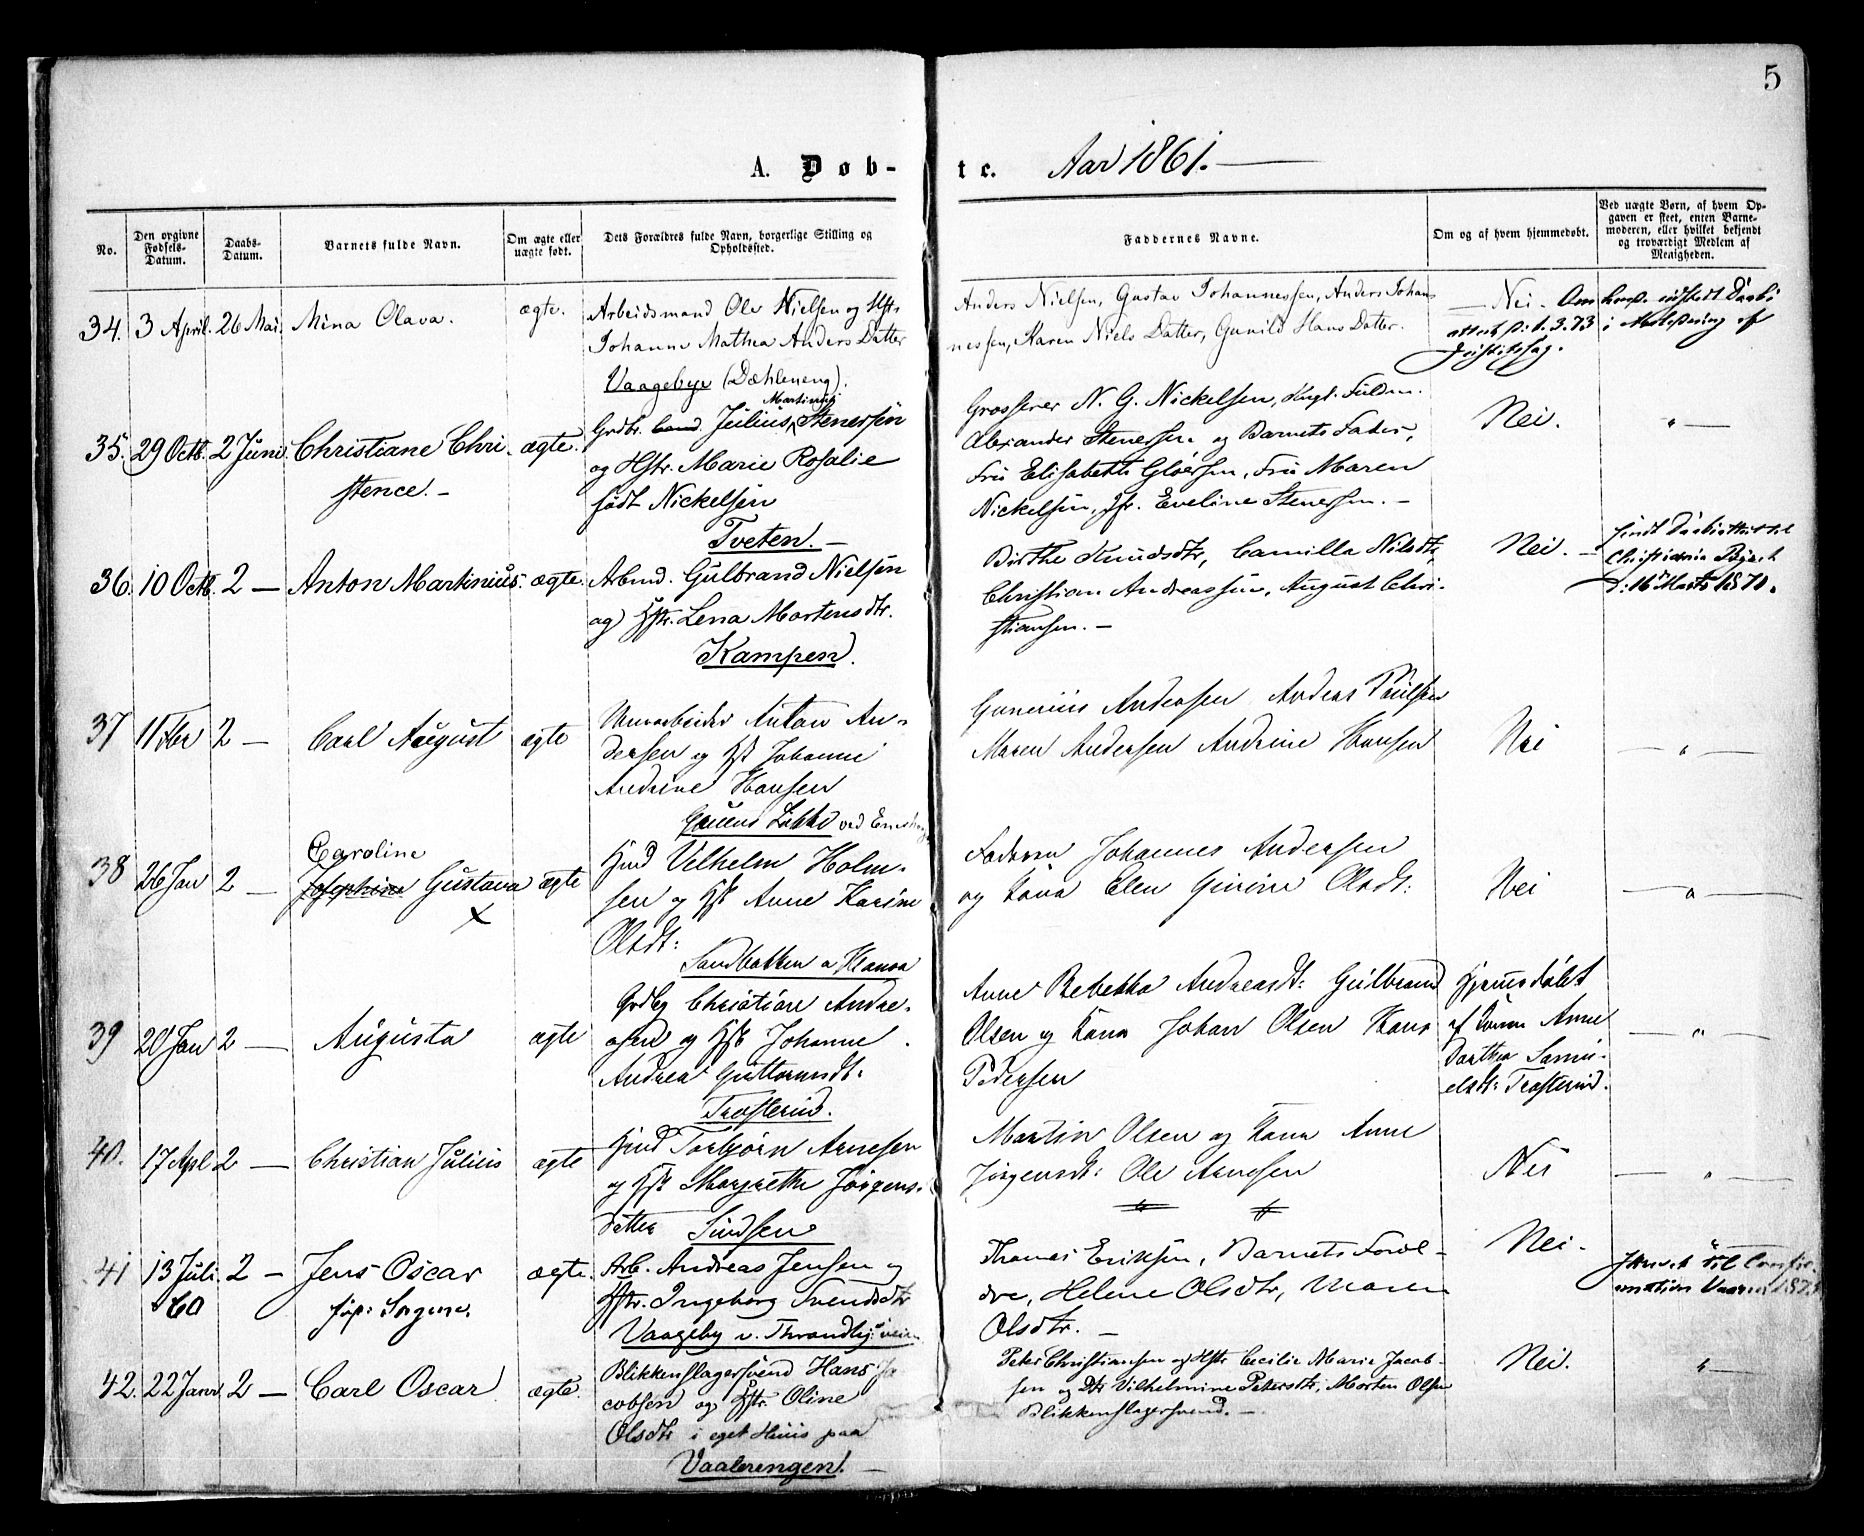 5
A. Døb-
te. Aar 1861.
No.
Den opgivne Fødsels-Datum.
Daabs-Datum.
Barnets fulde Navn.
Om ægte eller uægte født.
Dets Forældres fulde Navn, borgerlige Stilling og Opholdssted.
Faddernes Navne.
Om og af hvem hjemmedøbt.
Ved uægte Børn, af hvem Op-
gaven er skeet, enten Barne-
moderen, eller hvilket bekjendt
og troværdigt Medlem af
Menigheden.
34. 3 April. 26 Mai. Mina Olava. ægte.
Arbeidsmand Ole Nielsen og Hstr
Johanne Mathea Anders Datter
Vaagebye (Dæhleneng).
Anders Nielsen, Gustav Johannessen, Anders Johan
nessen, Karen Niels Datter, Gunild Hans Datter.
Nei.
attest 1.3.73
35. 29 Octb. 2 Juni. Christiane Chri-
stence. ægte.
Martinus
Grdbr. Julius Stenersen
og Hstr. Marie Rosalie
født Nickelsen
Tveten.
Grosserer N. G. Nickelsen, Fuldm.
Alexander Stenersen og Barnets Fader,
Fru Elisabeth Gløersen, Fru Maren
Nickelsen, Jfr. Eveline Stenersen.
Nei. "
36. 10 Octb. 2 — Anton Martinius. ægte.
Arbmd. Gulbrand Nielsen
og Hstr. Lena Mortensdtr.
Kampen.
Birthe Knudsdtr, Camilla Nilsdtr,
Christian Andreassen, August Chri-
stiansen.
Nei.
sendt Daabsattest til
Christiania
D: 16 Marts 1870.
37 11 Fbr 2 — Carl August ægte
Murarbeider Anton An-
dersen og Hst Johanne
Andrine Hansen
Grüners Løkke ved
Gunerius Andersen Anders Paulsen
Maren Andersen Andrine Hansen
Nei "
38 26 Jan 2 — Caroline
Josephine Gustava ægte
x
Hmd Vilhelm Holm-
sen og Hst Anne Karine
Olsdt:
Sandbakken a
Faderen Johannes Andersen
og Kona Elen Gurine Olsdt:
Nei "
39 20 Jan 2 — Augusta ægte
Grdbr Christian Andre-
asen og Hst Johanne
Andrea Guttormsdt:
Trosterud.
Anne Rebekka Andreasdt: Gulbrand
Olsen og Kona Johan Olsen Hans
Pedersen
Hjemmedøbt
af Konen Anne
Dorthea Samu-
elsdt: Trosterud.
"
40. 17 Apl 2 — Christian Julius ægte
Hmd Torbjørn Arnesen
og Hst Margrethe Jørgens-
datter Sindsen
Martin Olsen og Kona Anne
Jørgensdt: Ole Arnesen
Nei "
41 13 Juli 2 — Jens Oscar ægte.
60
Arb. Andreas Jensen og
Hstr. Ingeborg Svendsdtr
Vaageby v. Throndhj: veien
Thomas Eriksen, Barnets Foræl-
dre, Helene Olsdtr, Maren
Olsdtr.
Nei.
42. 22 Janr. 2 — Carl Oscar ægte.
Blikkenslagersvend Hans Ja
cobsen og Hstr. Oline
Olsdtr i eget Huus paa
Vaalerengen.
Peter Christiansen og Hstr Cecilie Marie Jacob-
sen og Dtr Vilhelmine Petersdtr, Morten Olsen
Blikkenslagersvend.
Nei. "